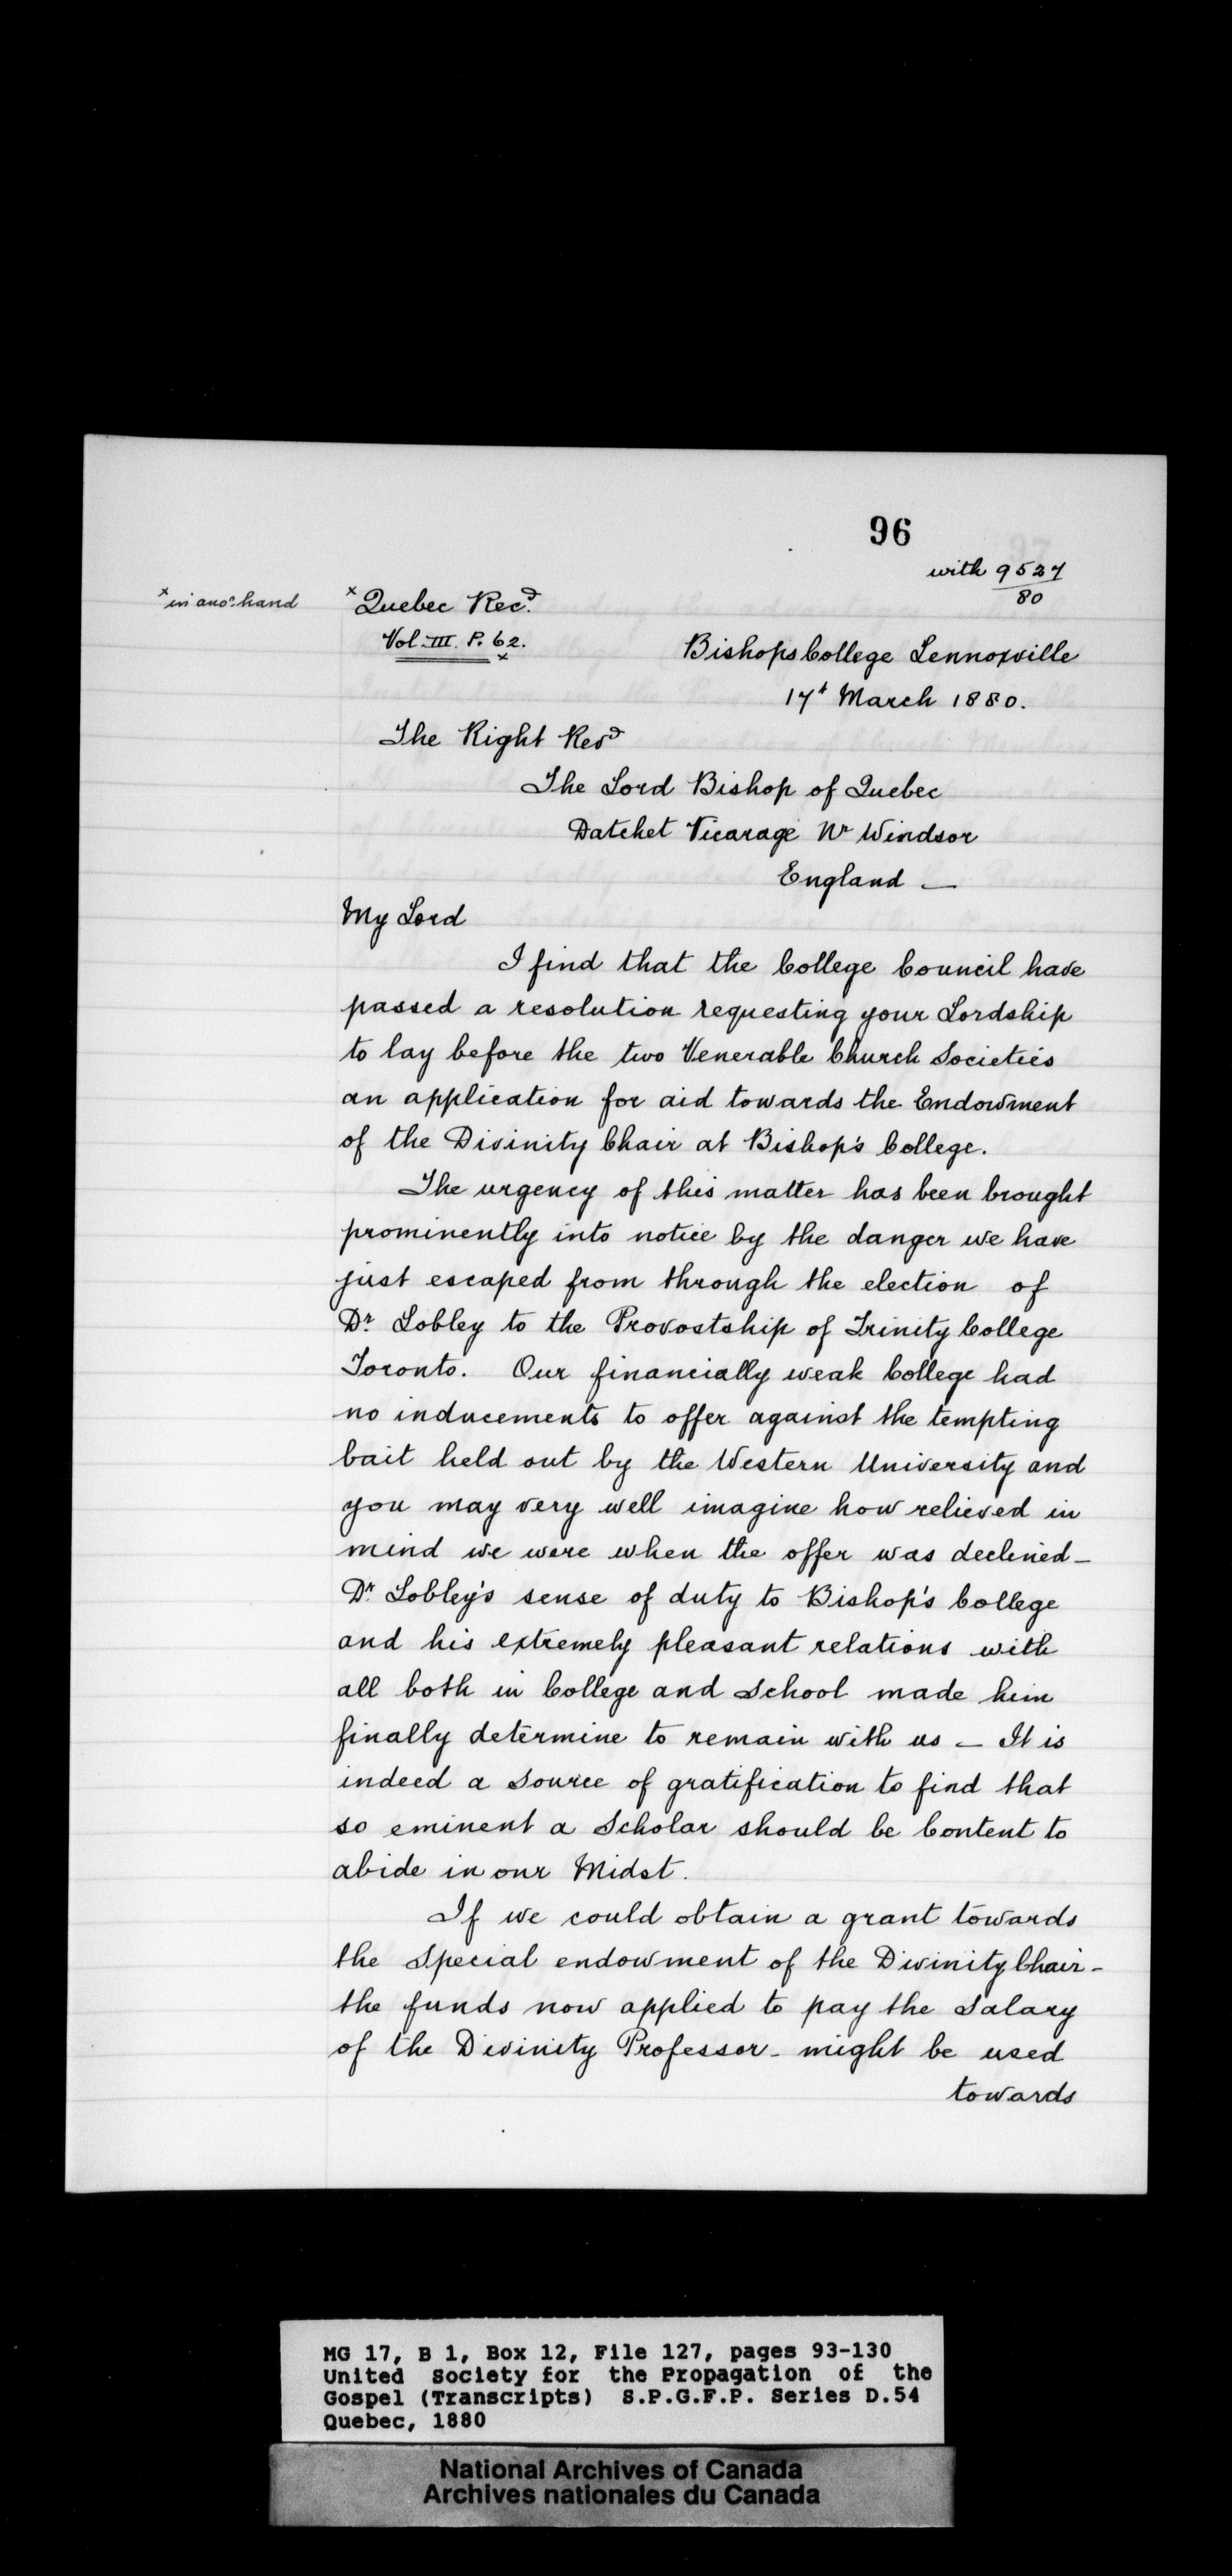 96
with 9527
80
x in anor. hand
x Quebec Recd.
Vol. III. P. 62. x
Bishops College Lennoxville
17t March 1880.
The Right Revd
The Lord Bishop of Quebec
Datchet Vicarage Nr Windsor
England —
My Lord
I find that the College Council have
passed a resolution requesting your Lordship
to lay before the two Venerable Church Societies
an application for aid towards the Endowment
of the Divinity Chair at Bishop's College.
The urgency of this matter has been brought
prominently into notice by the danger we have
just escaped from through the election of
Dr. Lobley to the Provostship of Trinity College
Toronto. Our financially weak College had
no inducements to offer against the tempting
bait held out by the Western University and
you may very well imagine how relieved in
mind we were when the offer was declined —
Dr. Lobley's sense of duty to Bishop's College
and his extremely pleasant relations with
all both in College and School made him
finally determine to remain with us — It is
indeed a source of gratification to find that
so eminent a Scholar should be Content to
abide in our Midst.
If we could obtain a grant towards
the Special endowment of the Divinity Chair -
the funds now applied to pay the Salary
of the Divinity Professor - might be used
towards
MG 17, B 1, Box 12, File 127, pages 93-130
United Society for the Propagation of the
Gospel (Transcripts) S.P.G.F.P. Series D.54
Quebec, 1880
National Archives of Canada
Archives nationales du Canada